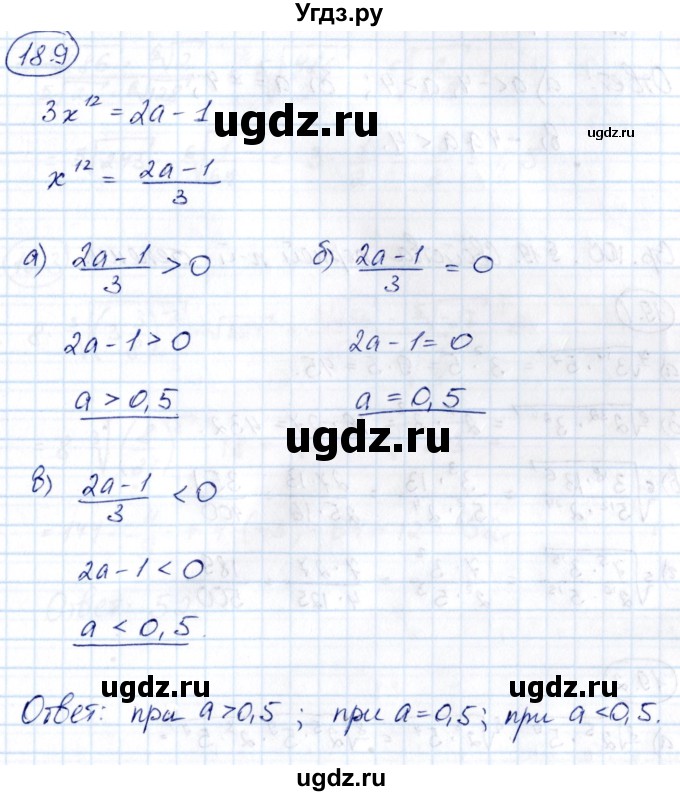 Угдз.ру
18.9
3x¹² = 2a − 1
x¹² = (2a − 1)/3
ugdz.ru
ugdz.ru
а) (2a − 1)/3 > 0   б) (2a − 1)/3 = 0
2a − 1 > 0   2a − 1 = 0
a > 0,5   a = 0,5
ugdz.ru
в) (2a − 1)/3 < 0
2a − 1 < 0
a < 0,5.
ugdz.ru
ugdz.ru
Ответ: при a > 0,5; при a = 0,5; при a < 0,5.
ugdz.ru